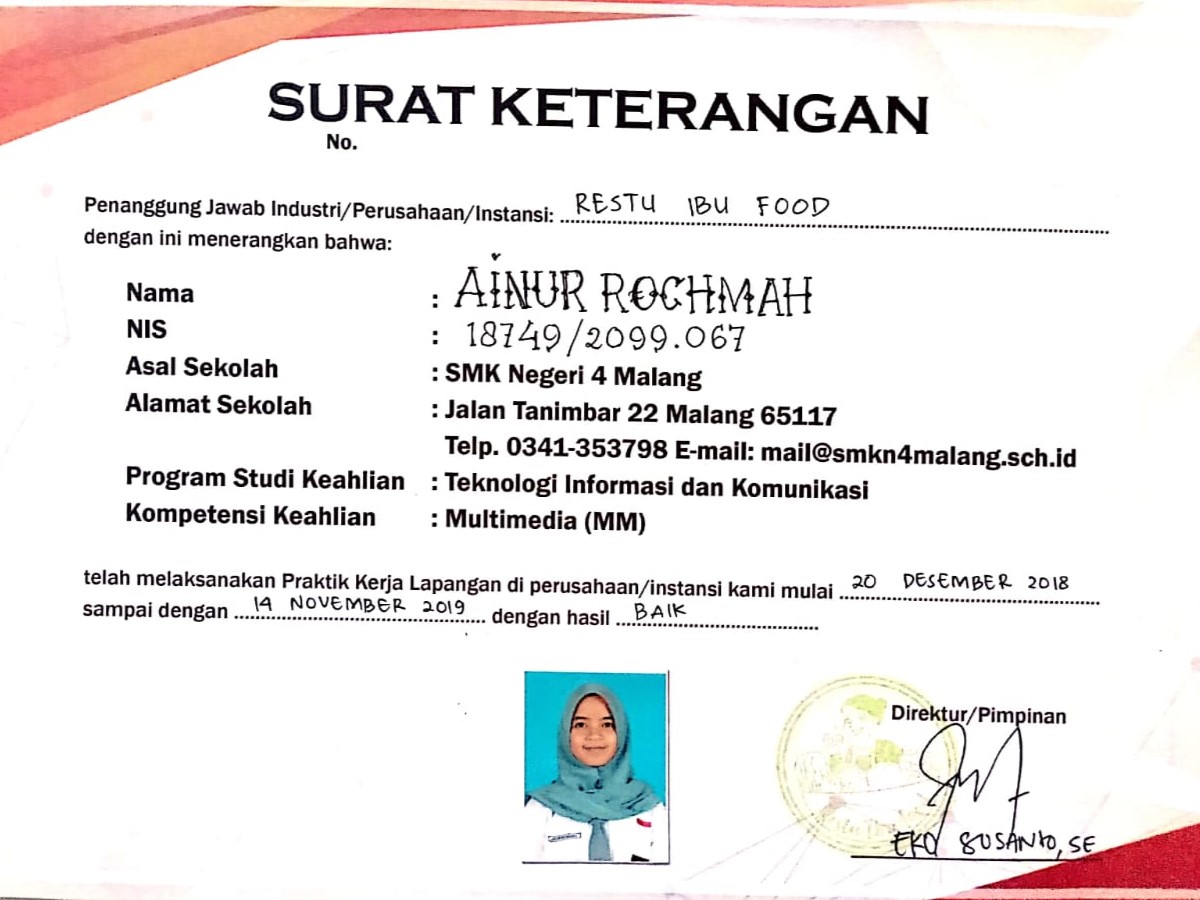 SURAT KETERANGAN
No.
Penanggung Jawab Industri/Perusahaan/Instansi: RESTU IBU FOOD
dengan ini menerangkan bahwa:
Nama : AINUR ROCHMAH
NIS : 18749/2099.067
Asal Sekolah : SMK Negeri 4 Malang
Alamat Sekolah : Jalan Tanimbar 22 Malang 65117
Telp. 0341-353798 E-mail: mail@smkn4malang.sch.id
Program Studi Keahlian : Teknologi Informasi dan Komunikasi
Kompetensi Keahlian : Multimedia (MM)
telah melaksanakan Praktik Kerja Lapangan di perusahaan/instansi kami mulai 20 DESEMBER 2018
sampai dengan 14 NOVEMBER 2019 dengan hasil BAIK
Direktur/Pimpinan
EKO SUSANTO, SE